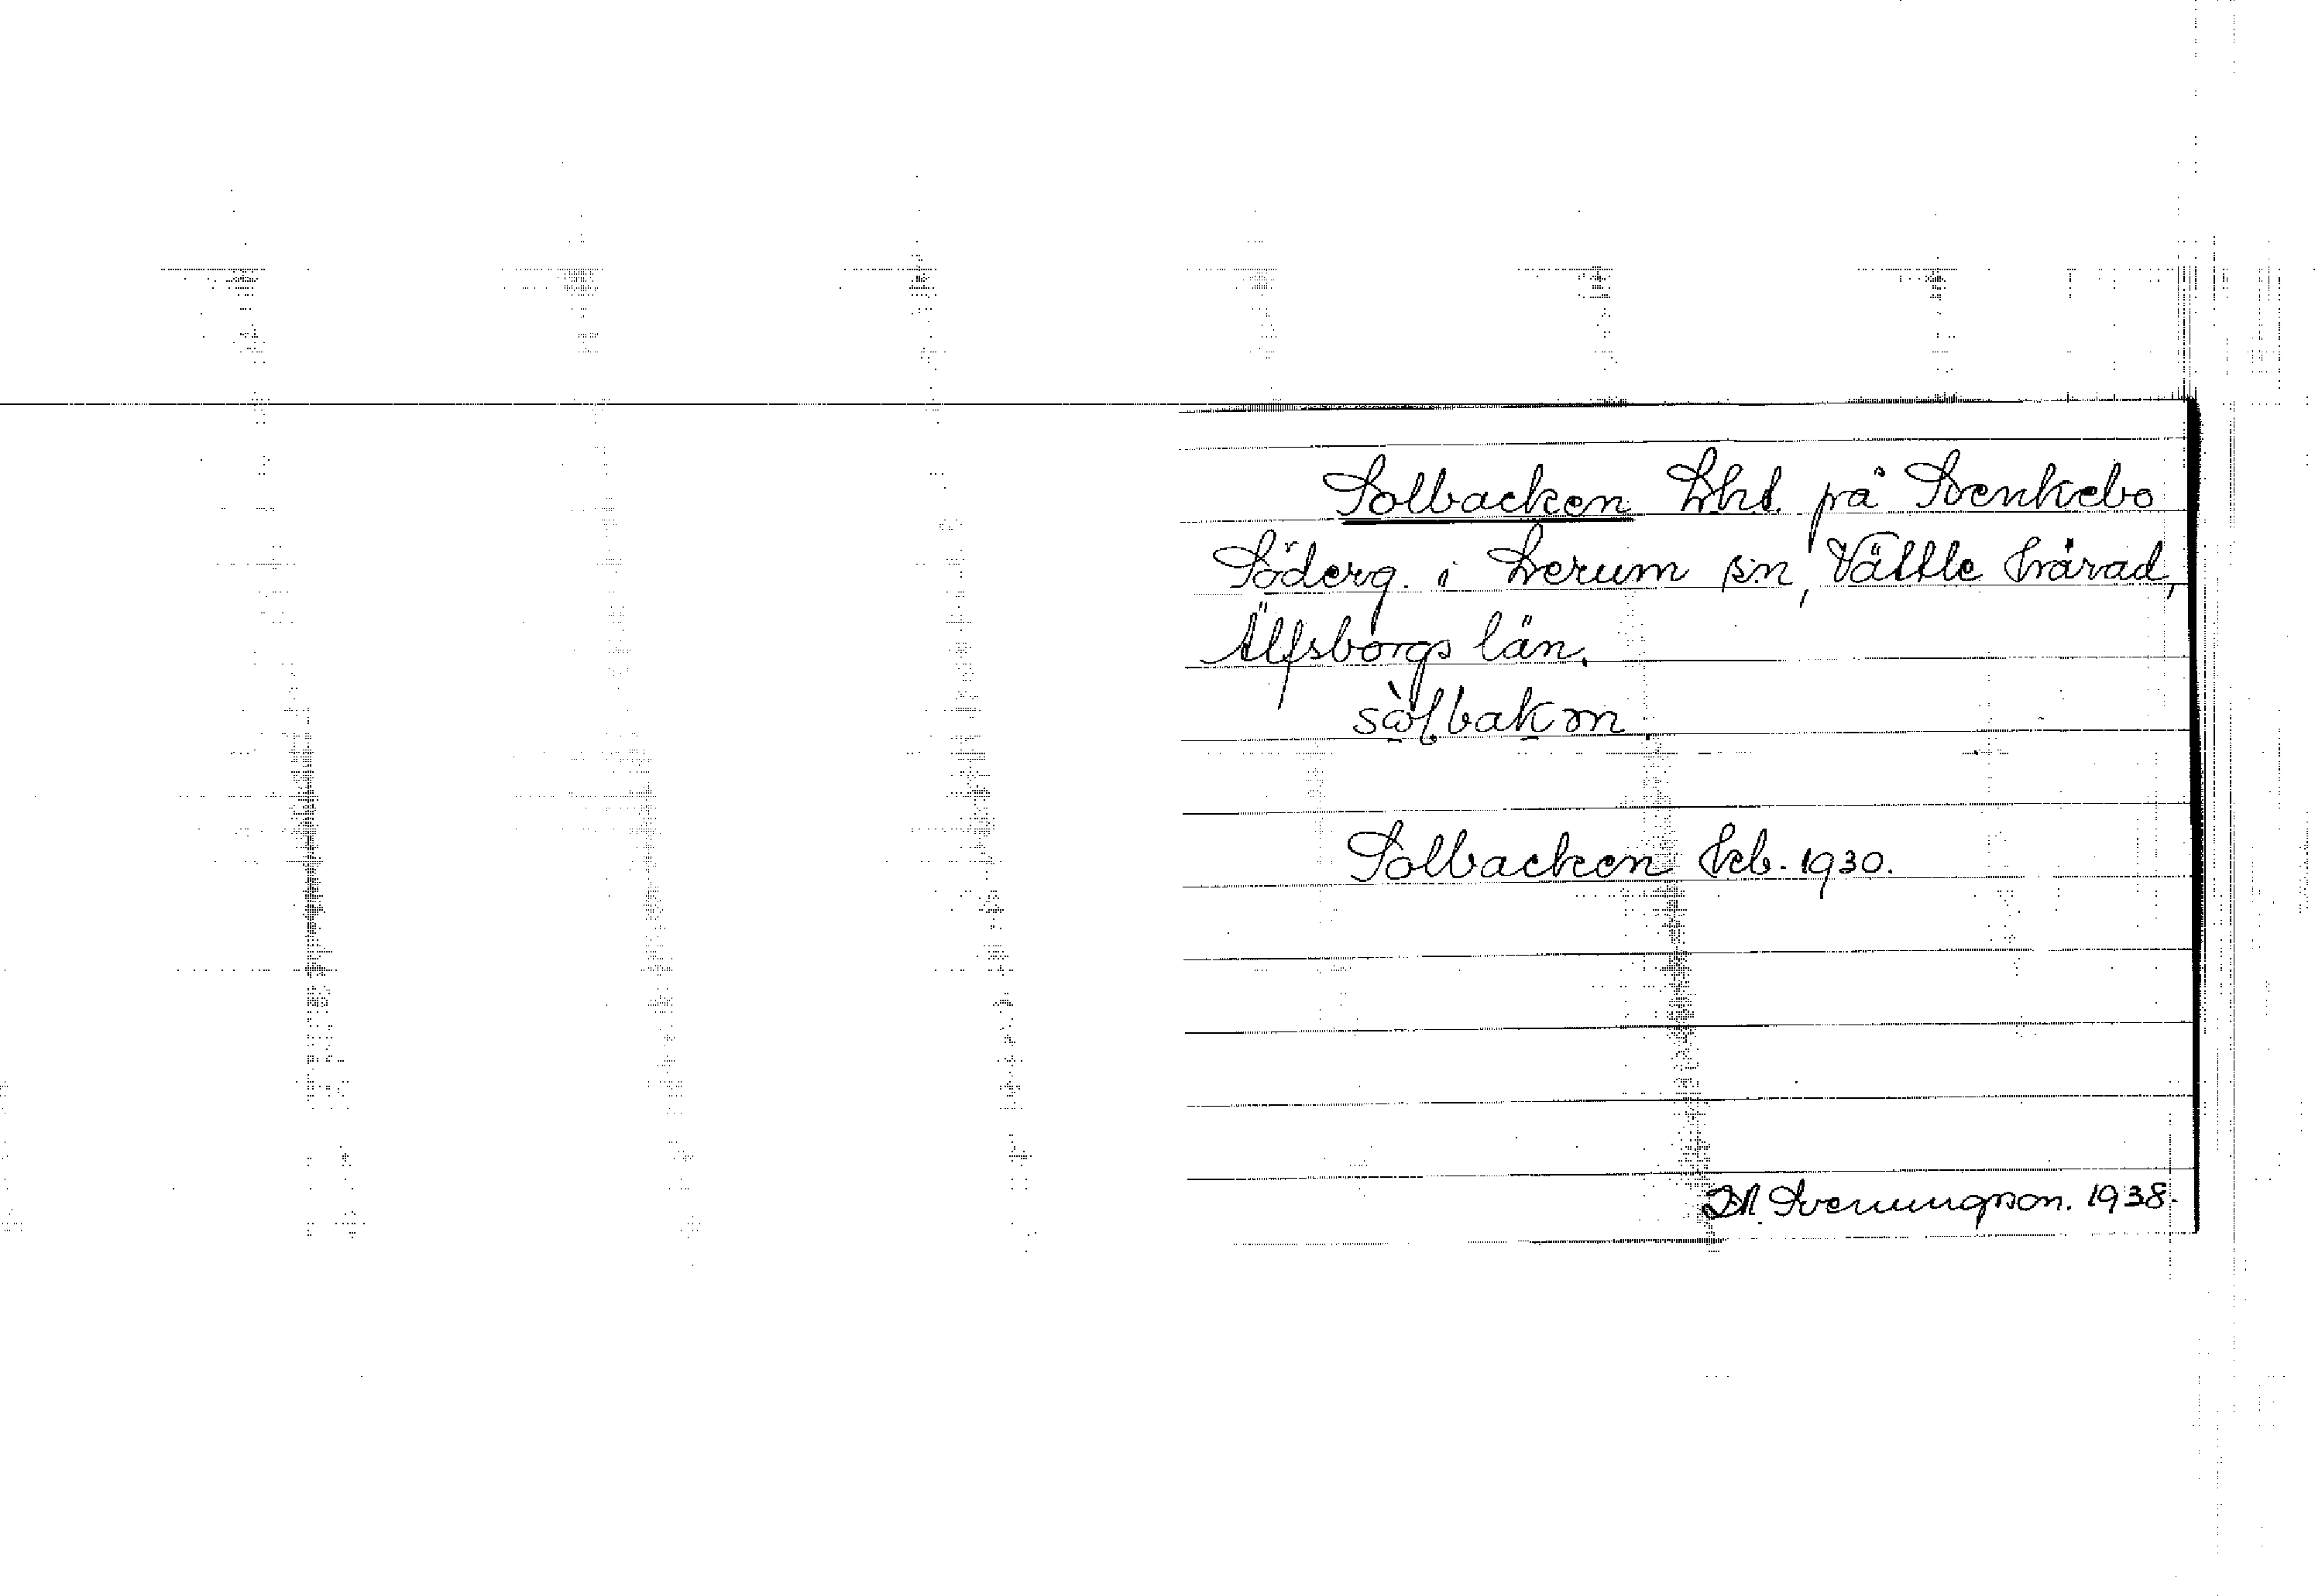 Solbacken Lht. på Stenkebo
Söderg. i Lerum sn, Vättle härad,
Älfsborgs län.
sòlbakɷn
Solbacken kb. 1930.
Svenungson. 1938.